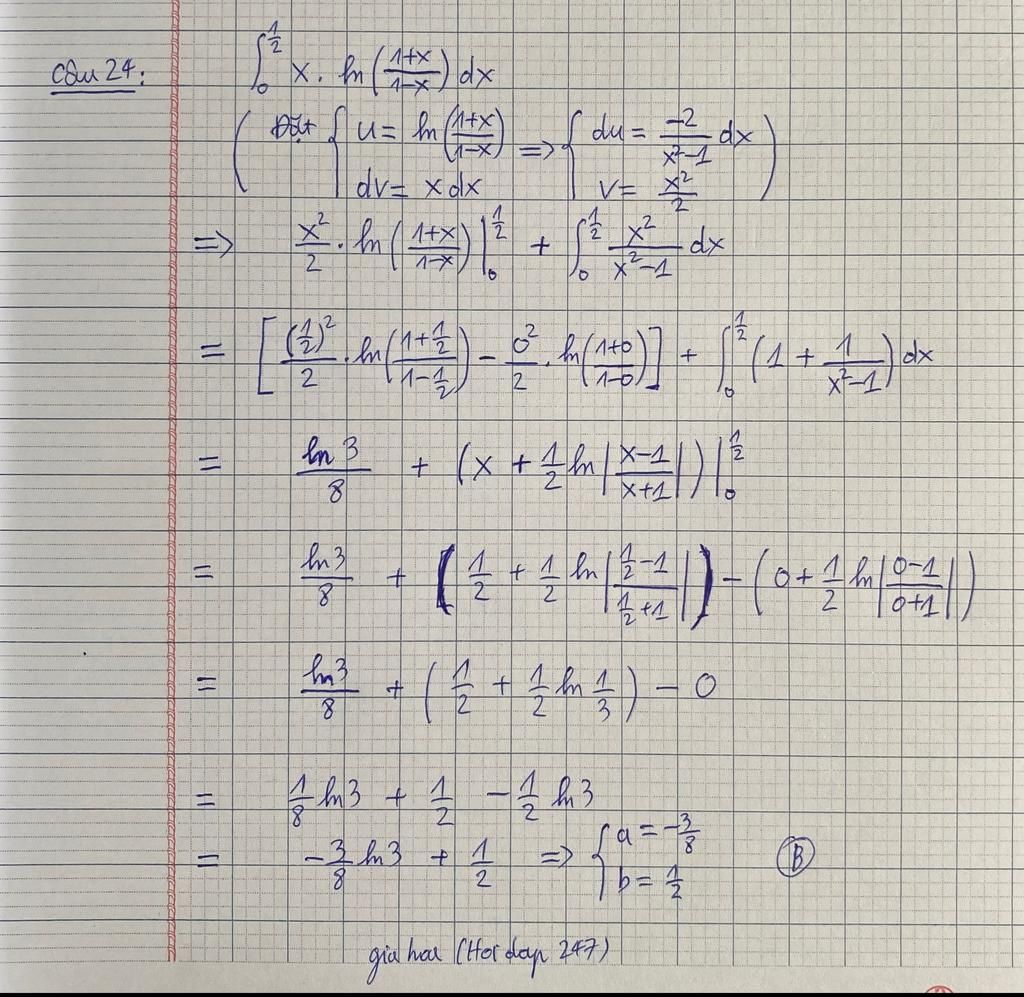 Câu 24: ∫₀^{1/2} x. ln((1+x)/(1-x)) dx
( Đặt { u = ln((1+x)/(1-x)) => { du = -2/(x²-1) dx
dv = x dx v = x²/2 )
=> x²/2 . ln((1+x)/(1-x)) |₀^{1/2} + ∫₀^{1/2} x²/(x²-1) dx
= [ (1/2)²/2 . ln((1+1/2)/(1-1/2)) - 0²/2 . ln((1+0)/(1-0)) ] + ∫₀^{1/2} (1 + 1/(x²-1)) dx
= ln3/8 + (x + 1/2 ln|(x-1)/(x+1)|) |₀^{1/2}
= ln3/8 + (1/2 + 1/2 ln|(1/2-1)/(1/2+1)|) - (0 + 1/2 ln|(0-1)/(0+1)|)
= ln3/8 + (1/2 + 1/2 ln 1/3) - 0
= 1/8 ln3 + 1/2 - 1/2 ln3
= -3/8 ln3 + 1/2 => { a = -3/8
b = 1/2 Ⓑ
(Hoidap 247)